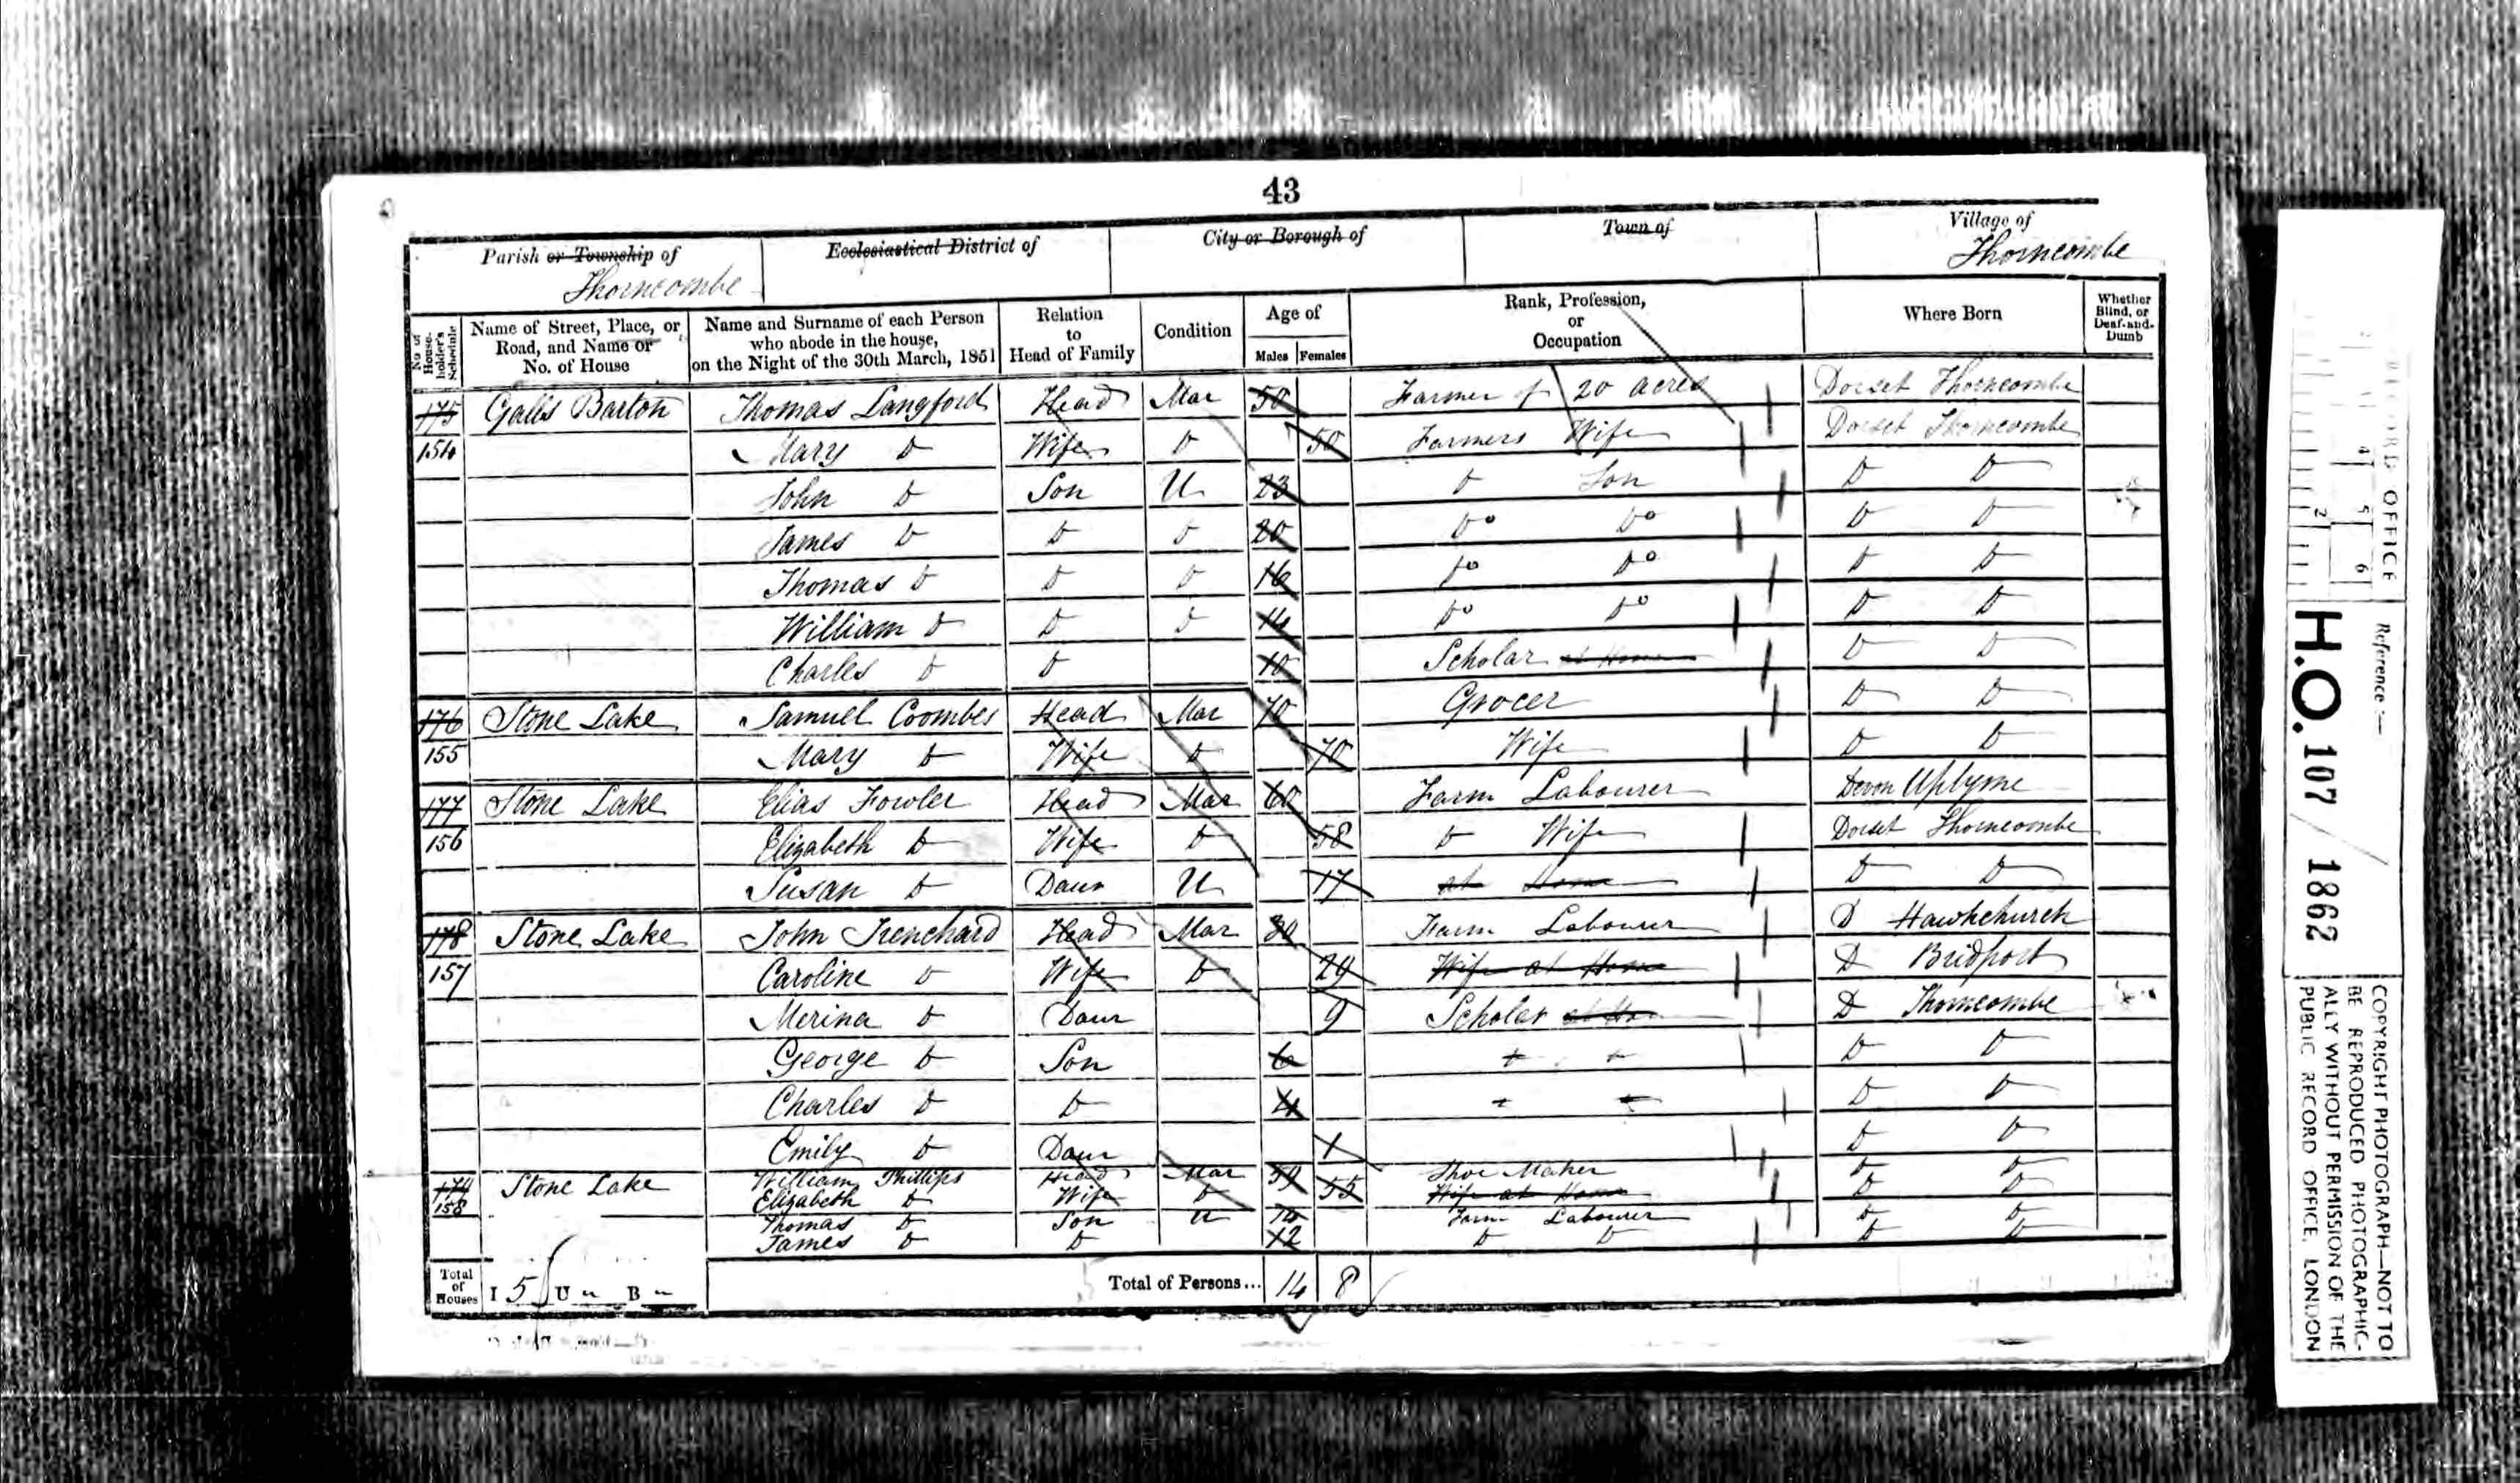 43
Parish or Township of
Thorncombe
Ecclesiastical District of
City or Borough of
Town of
Village of
Thorncombe
No. of House-holder's Schedule
Name of Street, Place, or Road, and Name or No. of House
Name and Surname of each Person who abode in the house, on the Night of the 30th March, 1851
Relation to Head of Family
Condition
Age of
Males Females
Rank, Profession, or Occupation
Where Born
Whether Blind, or Deaf-and-Dumb
175 Galls Barton Thomas Langford Head Mar 50 Farmer of 20 acres Dorset Thorncombe
154 Mary Do Wife Do 50 Farmers Wife Dorset Thorncombe
John Do Son U 23 Do Son Do Do
James Do Do Do 20 Do Do Do Do
Thomas Do Do Do 16 Do Do Do Do
William Do Do Do 14 Do Do Do Do
Charles Do Do 10 Scholar at Home Do Do
176 Stone Lake Samuel Coombes Head Mar 70 Grocer Do Do
155 Mary Do Wife Do 70 Wife Do Do
177 Stone Lake Elias Fowler Head Mar 60 Farm Labourer Devon Uplyme
156 Elizabeth Do Wife Do 58 Do Wife Dorset Thorncombe
Susan Do Daur U 17 at Home Do Do
178 Stone Lake John Trenchard Head Mar 30 Farm Labourer Do Hawkchurch
157 Caroline Do Wife Do 29 Wife at Home Do Bridport
Merina Do Daur 9 Scholar at Ho Do Thorncombe
George Do Son 6 Do Do
Charles Do Do 4 Do Do
Emily Do Daur 1 Do Do
179 Stone Lake William Phillips Head Mar 59 Shoe Maker Do Do
158 Elizabeth Do Wife Do 55 Wife at Home Do Do
Thomas Do Son U Farm Labourer Do Do
James Do Do 12 Do Do Do Do
Total of Houses I 5 U „ B „
Total of Persons... 14 8
RECORD OFFICE
Reference :—
H.O. 107 / 1862
COPYRIGHT PHOTOGRAPH—NOT TO
BE REPRODUCED PHOTOGRAPHIC-
ALLY WITHOUT PERMISSION OF THE
PUBLIC RECORD OFFICE, LONDON